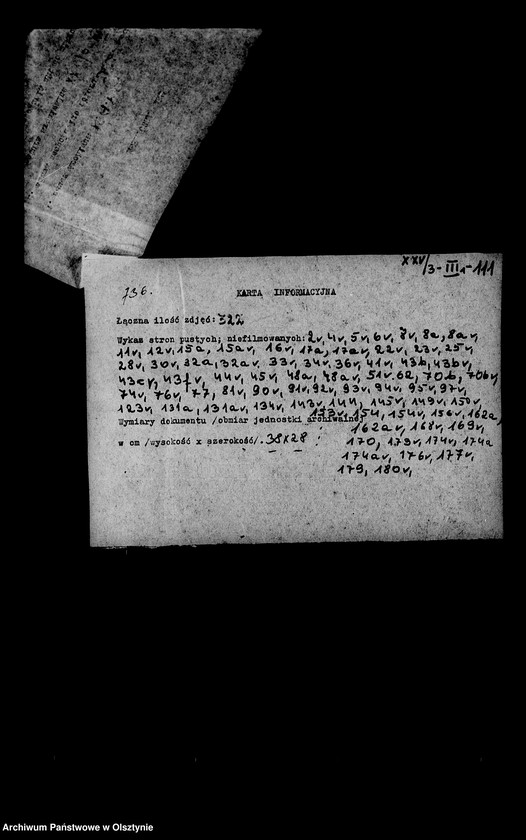 XXV/3-III-111
736.
KARTA INFORMACYJNA
Łączna ilość zdjęć: 322
Wykaz stron pustych, niefilmowanych: 2v, 4v, 5v, 6v, 8v, 8a, 8av,
11v, 12v, 15a, 15av, 16v, 17a, 17av, 22v, 23v, 25v,
28v, 30v, 32a, 32av, 33v, 34v, 36v, 41v, 43b, 43bv,
43cv, 43fv, 44v, 45v, 48a, 48av, 51v, 62, 70b, 70bv,
74v, 76v, 77, 81v, 90v, 91v, 92v, 93v, 94v, 95v, 97v,
123v, 131a, 131av, 134v, 143v, 144, 145v, 149v, 150v,
153v, 154, 154v, 156v, 162a,
Wymiary dokumentu /obmiar jednostki archiwalnej/
162av, 168v, 169v,
w cm /wysokość x szerokość/. 38x28
170, 173v, 174v, 174a
174av, 176v, 177v,
179, 180v,
Archiwum Państwowe w Olsztynie